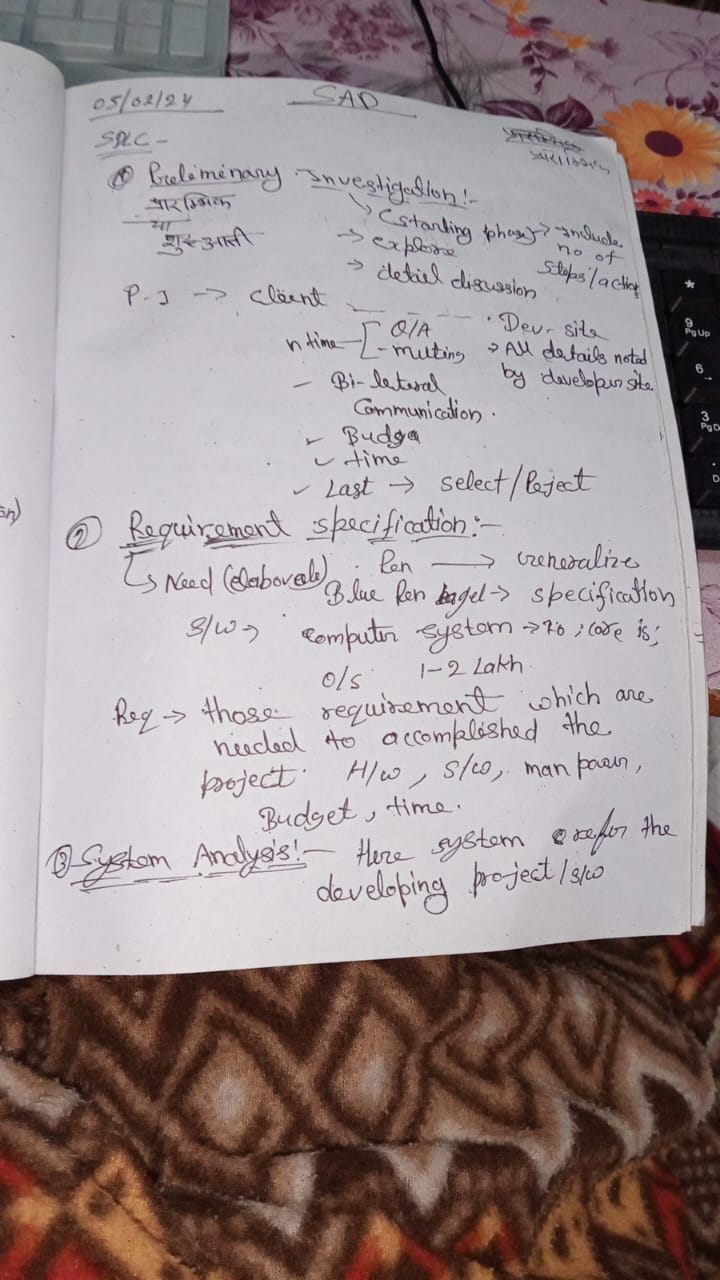 05/02/24
SAD
SDLC -
① Preliminary Investigation:-
प्रारम्भिक
या
शुरूआती
↳ (Starting phase) → include
no of
steps/action
→ explore
→ detiel discussion
P.I → Client
Dev. site
n time
Q/A
- muting
→ All details noted
by developer site.
- Bi-lateral
Communication.
✓ Budge
✓ time
✓ Last → select/Reject
② Requirement specification:-
↳ Need (elaborate). Pen → Generalize
Blue Pen → specification
S/W → Computer system → i core i5,
O/S 1-2 Lakh.
Req → those requirement which are
needed to accomplished the
project. H/w, S/w, man power,
Budget, time.
③ System Analysis:- Here system refer the
developing project/S/w
*
9
Pg Up
6
→
3
Pg D
D